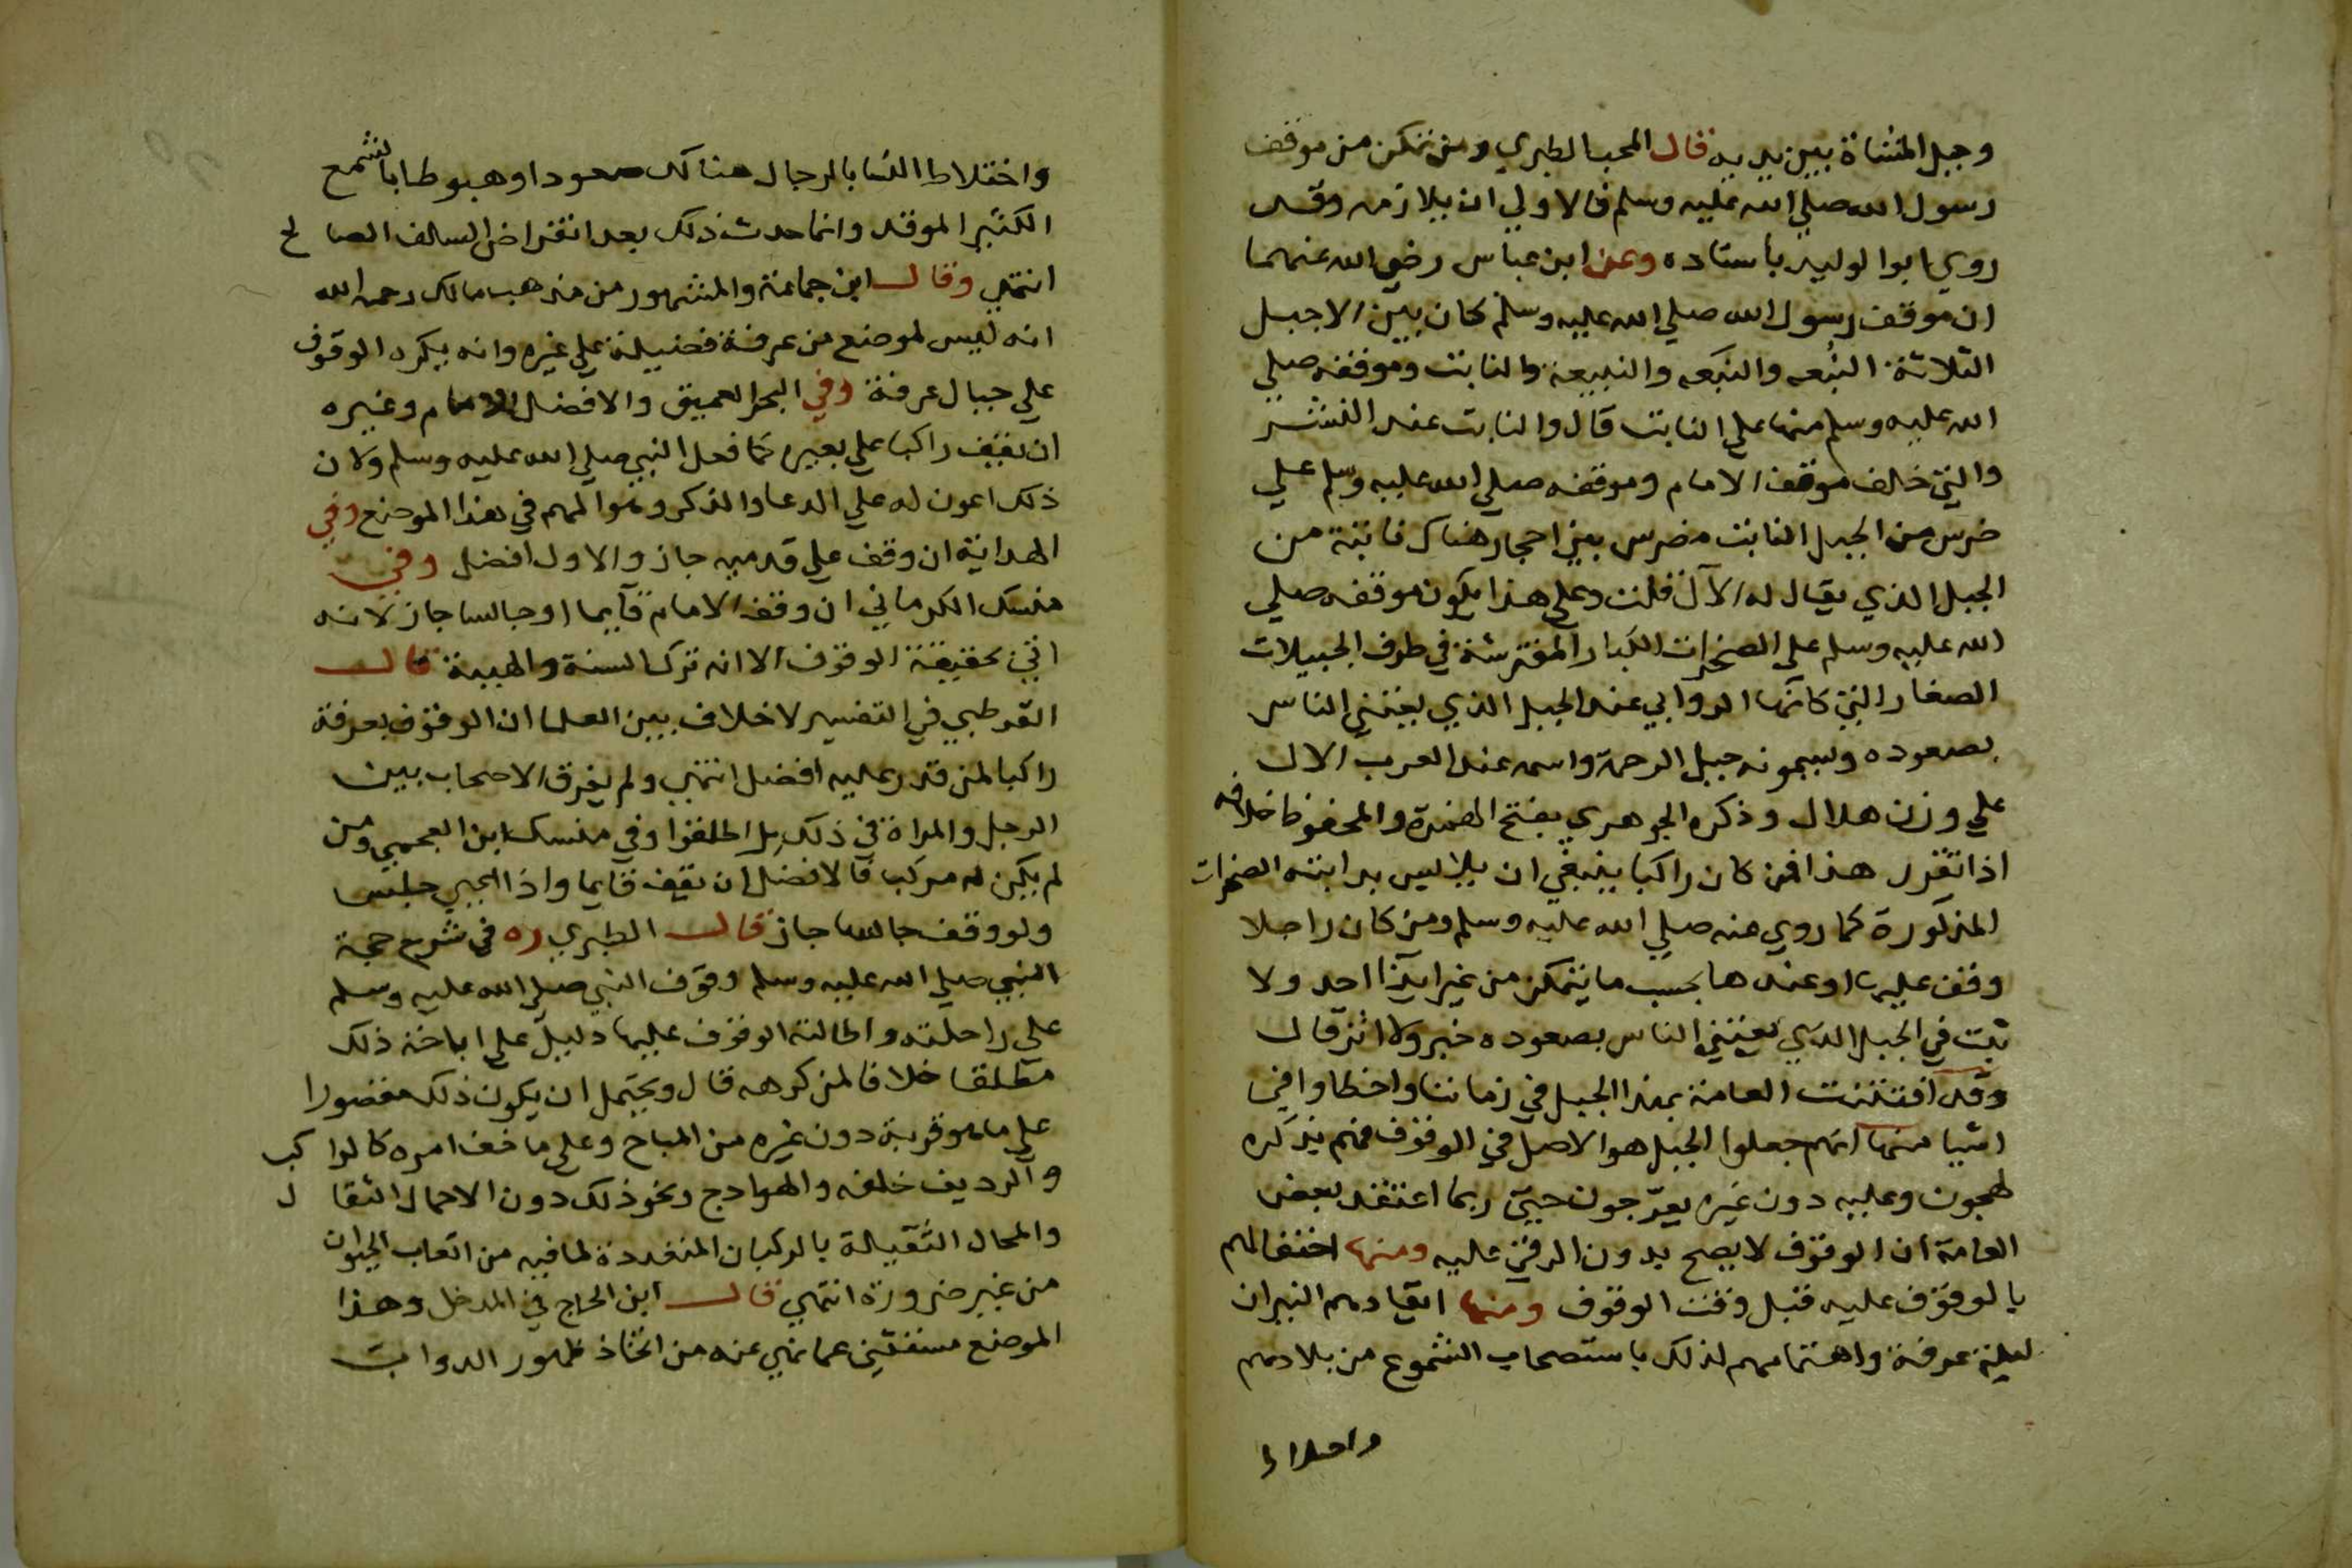 وجبل المشاة بين يديه قال المحب الطبري ومن تمكن من موقف
رسول الله صلي الله عليه وسلم فالاولي ان يلازمه وقد
روي ابوا لوليد باسناده وعن ابن عباس رضي الله عنهما
ان موقف رسول الله صلي الله عليه وسلم كان بين الاجبل
الثلاثة النبعه والنبعه والنبيعة والنابت وموقفه صلي
الله عليه وسلم منها علي النابت قال والنابت عند النشز
والتي خلف موقف الامام وموقفه صلي الله عليه وسلم علي
ضرس من الجبل النابت مضرس بين احجار هناك نابتة من
الجبل الذي يقال له الآل قلت وعلي هذا يكون موقفه صلي
الله عليه وسلم علي الصخرات الكبار المفترشة في طرف الجبيلات
الصغار التي كانها الروابي عند الجبل الذي يعتني الناس
بصعوده ويسمونه جبل الرحمة واسمه عند العرب الال
علي وزن هلال وذكره الجوهري بفتح الهمزة والمحفوظ خلافه
اذا تقرر هذا فمن كان راكبا ينبغي ان يلابس بدابته الصخرات
المذكورة كما روي عنه صلي الله عليه وسلم ومن كان راجلا
وقف عليها اوعندها بحسب ما يتمكن من غير ايذا احد ولا
ثبت في الجبل الذي يعتني الناس بصعوده خبر ولا اثر قال
وقد افتتنت العامة بهذا الجبل في زماننا واخطاوا في
اشيا منها انهم جعلوا الجبل هو الاصل في الوقوف فهم بذكره
لهجون وعليه دون غيره يعرّجون حتي ربما اعتقد بعض
العامة ان الوقوف لا يصح بدون الرقي عليه ومنها احتفالهم
بالوقوف عليه قبل وقت الوقوف ومنها ايقادهم النيران
ليلة عرفة واهتمامهم لذلك باستصحاب الشموع من بلادهم
واختلاط
واختلاط النسا بالرجال هناك صعودا وهبوطا بالشمع
الكثير الموقد وانما حدث ذلك بعد انقراض السلف الصالح
انتهي وقال ابن جماعة والمشهور من مذهب مالك رحمه الله
انه ليس لموضع من عرفة فضيلة علي غيره وانه يكره الوقوف
علي جبال عرفة وفي البحر العميق والافضل للامام وغيره
ان يقف راكبا علي بعيره كما فعل النبي صلي الله عليه وسلم ولان
ذلك اعون له علي الدعا والذكر وهو المهم في هذا الموضع وفي
الهداية ان وقف علي قدميه جاز والاول افضل وفي
منسك الكرماني ان وقف الامام قآيما اوجالسا جاز لانه
اتي بحقيقة الوقوف الا انه ترك السنة والهيبة قال
القرطبي في التفسير لا خلاف بين العلما ان الوقوف بعرفة
راكبا لمن قدر عليه افضل انتهي ولم يفرق الاصحاب بين
الرجل والمراة في ذلك بل اطلقوا وفي منسك ابن العجمي ومن
لم يكن له مركب فالافضل ان يقف قايما واذا اعيي جلس
ولو وقف جالسا جاز قال الطبري ره في شرح حجة
النبي صلي الله عليه وسلم وقوف النبي صلي الله عليه وسلم
علي راحلته واطالته الوقوف عليها دليل علي اباحة ذلك
مطلقا خلافا لمن كرهه قال ويحتمل ان يكون ذلك مقصورا
علي ما هو قربة دون غيره من المباح وعلي ما خف امره كالراكب
والرديف خلفه والهوادج ونحو ذلك دون الاحمال الثقال
والمحال الثقيلة بالركبان المتعددة لما فيه من اتعاب الحيوان
من غير ضرورة انتهي قال ابن الحاج في المدخل وهذا
الموضع مستثني عما نهي عنه من اتخاذ ظهور الدواب